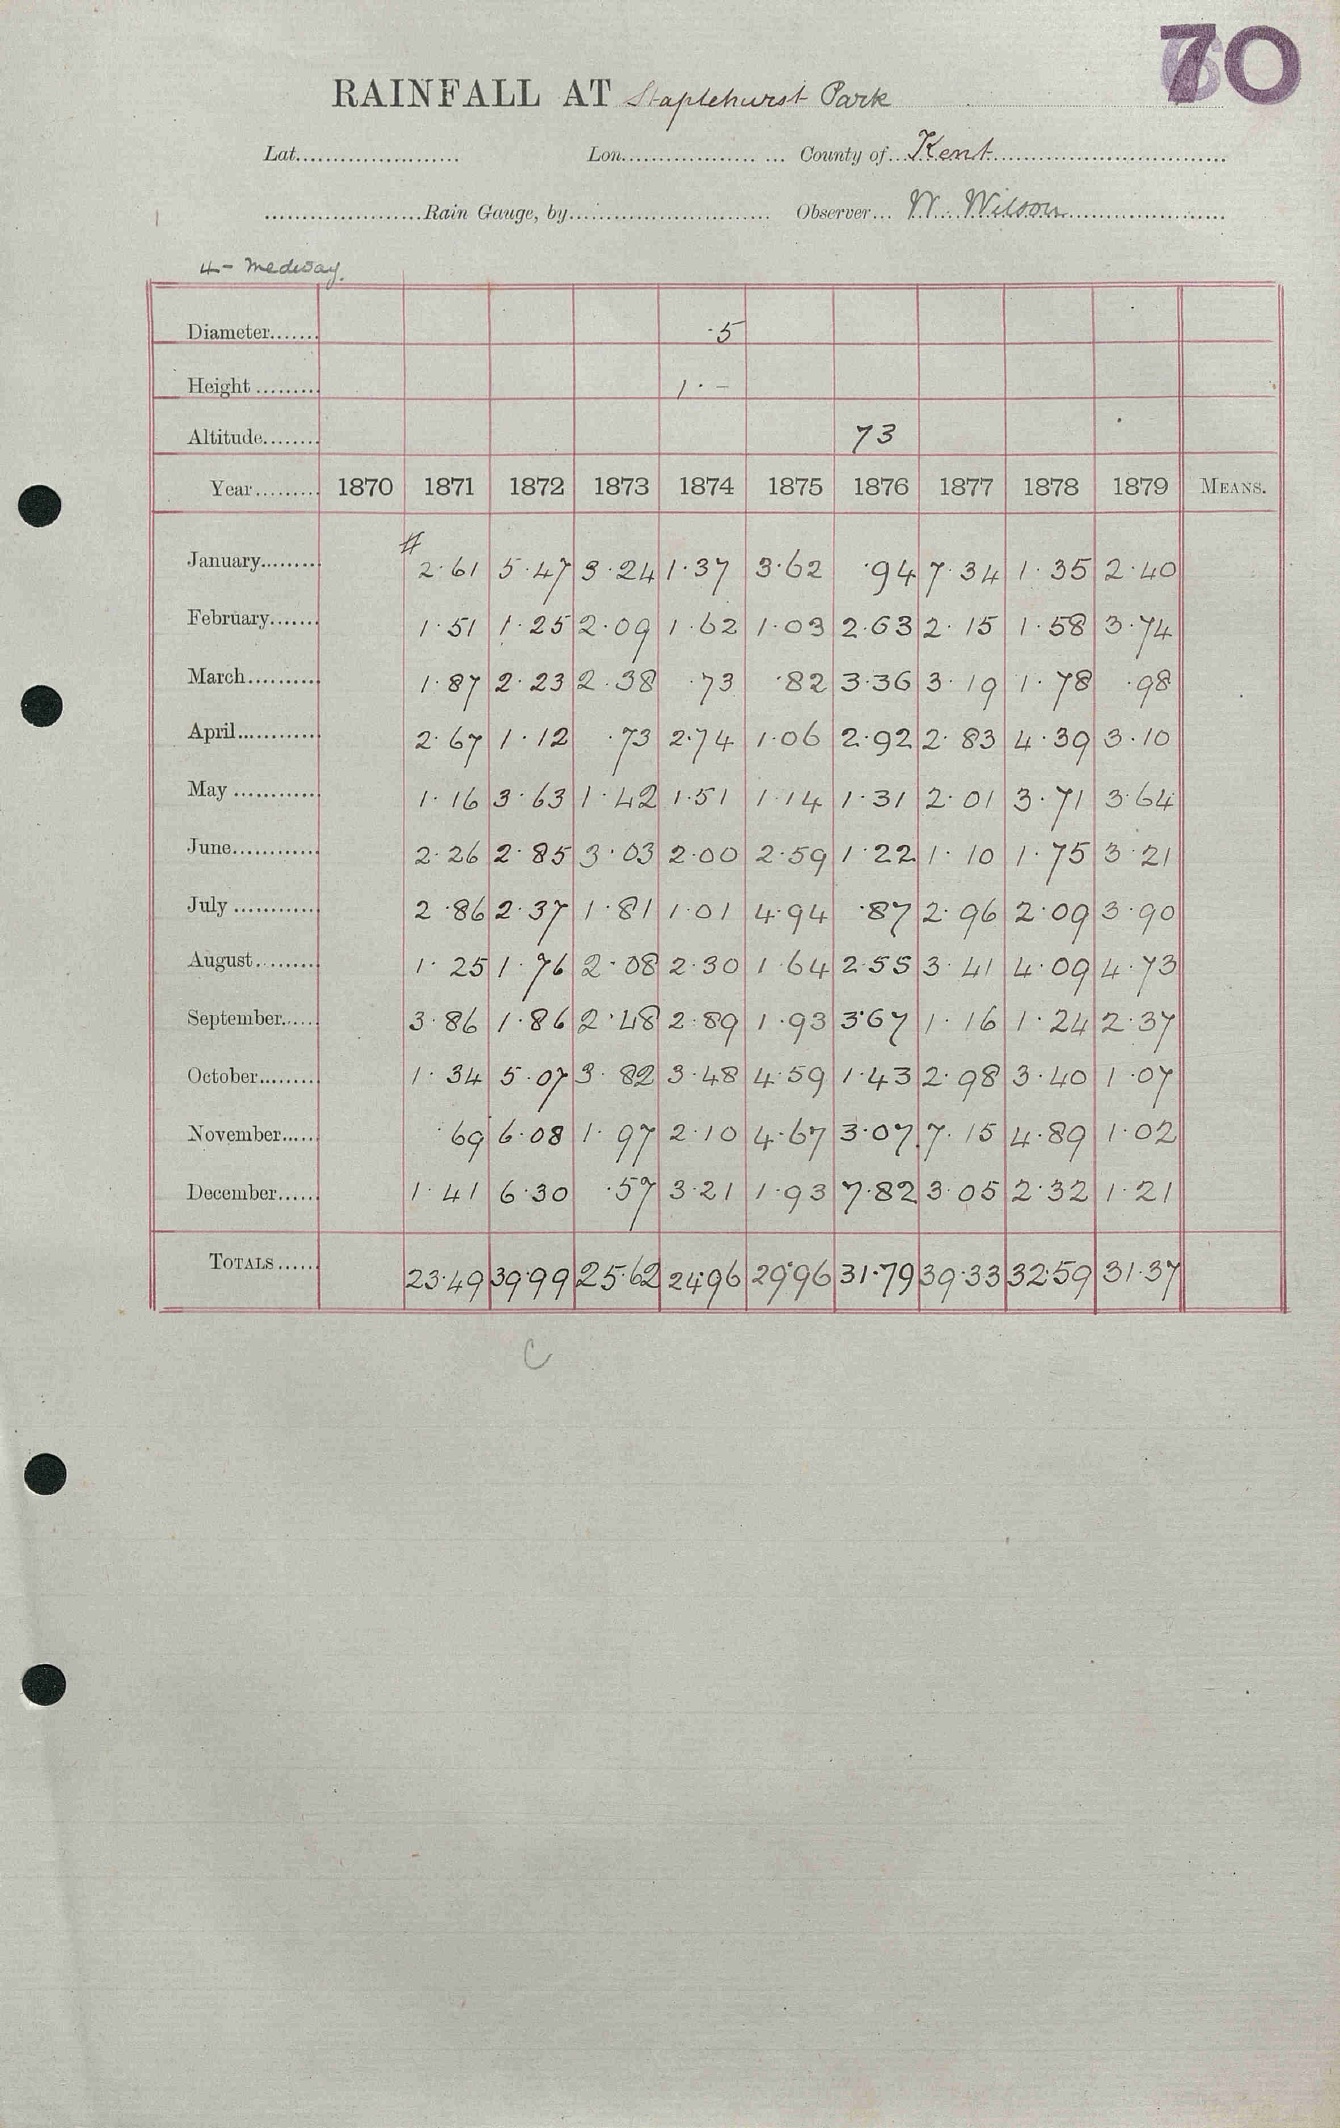 70
RAINFALL AT Staplehurst Park
Lat. Lon. County of Kent
Rain Gauge, by Observer W. Wilson
4- Medway.
Diameter ·5
Height 1·-
Altitude 73
Year 1870 1871 1872 1873 1874 1875 1876 1877 1878 1879 MEANS.
#
January 2·61 5·47 3·24 1·37 3·62 ·94 7·34 1·35 2·40
February 1·51 1·25 2·09 1·62 1·03 2·63 2·15 1·58 3·74
March 1·87 2·23 2·38 ·73 ·82 3·36 3·19 1·78 ·98
April 2·67 1·12 ·73 2·74 1·06 2·92 2·83 4·39 3·10
May 1·16 3·63 1·42 1·51 1·14 1·31 2·01 3·71 3·64
June 2·26 2·85 3·03 2·00 2·59 1·22 1·10 1·75 3·21
July 2·86 2·37 1·81 1·01 4·94 ·87 2·96 2·09 3·90
August 1·25 1·76 2·08 2·30 1·64 2·55 3·41 4·09 4·73
September 3·86 1·86 2·48 2·89 1·93 3·67 1·16 1·24 2·37
October 1·34 5·07 3·82 3·48 4·59 1·43 2·98 3·40 1·07
November ·69 6·08 1·97 2·10 4·67 3·07 7·15 4·89 1·02
December 1·41 6·30 ·57 3·21 1·93 7·82 3·05 2·32 1·21
TOTALS 23·49 39·99 25·62 24·96 29·96 31·79 39·33 32·59 31·37
C